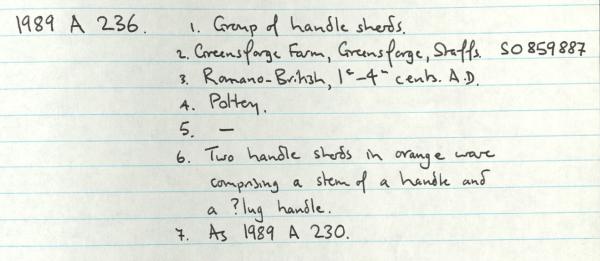 1989 A 236. 1. Group of handle sherds.
2. Greensforge Farm, Greensforge, Staffs. SO 859887
3. Romano-British, 1st-4th cents. A.D.
4. Pottery.
5. —
6. Two handle sherds in orange ware
comprising a stem of a handle and
a ?lug handle.
7. As 1989 A 230.